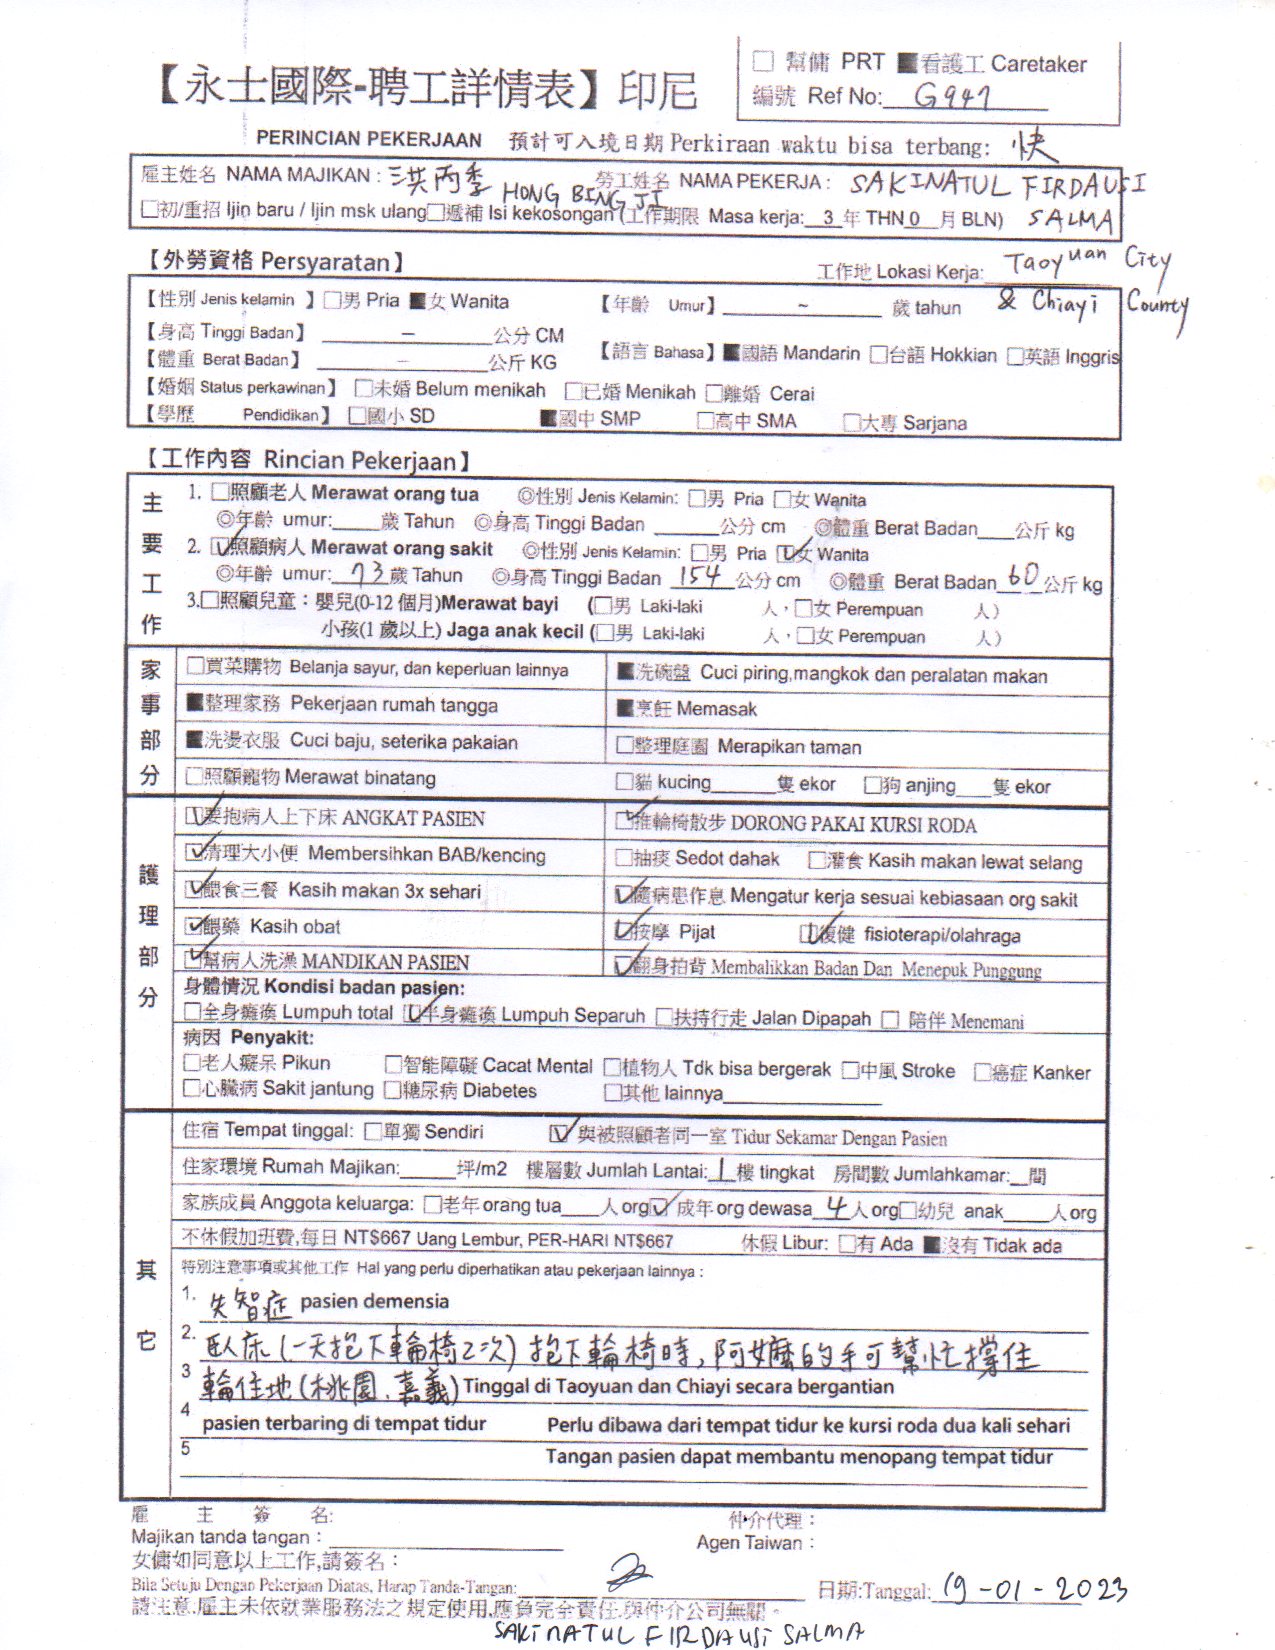 □ 幫傭 PRT ■看護工 Caretaker
【永士國際-聘工詳情表】印尼
編號 Ref No: G947
PERINCIAN PEKERJAAN 預計可入境日期 Perkiraan waktu bisa terbang: 快
雇主姓名 NAMA MAJIKAN : 洪丙季 HONG BING JI 勞工姓名 NAMA PEKERJA : SAKINATUL FIRDAUSI
□初/重招 Ijin baru / Ijin msk ulang□遞補 Isi kekosongan (工作期限 Masa kerja: 3 年 THN 0 月 BLN) SALMA
【外勞資格 Persyaratan】 工作地 Lokasi Kerja: Taoyuan City
& Chiayi County
【性別 Jenis kelamin 】□男 Pria ■女 Wanita 【年齡 Umur】 ~ 歲 tahun
【身高 Tinggi Badan】 – 公分 CM
【體重 Berat Badan】 – 公斤 KG 【語言 Bahasa】■國語 Mandarin □台語 Hokkian □英語 Inggris
【婚姻 Status perkawinan】 □未婚 Belum menikah □已婚 Menikah □離婚 Cerai
【學歷 Pendidikan】 □國小 SD ■國中 SMP □高中 SMA □大專 Sarjana
【工作內容 Rincian Pekerjaan】
主要工作
1. □照顧老人 Merawat orang tua ◎性別 Jenis Kelamin: □男 Pria □女 Wanita
◎年齡 umur:____歲 Tahun ◎身高 Tinggi Badan ______公分 cm ◎體重 Berat Badan___公斤 kg
2. ☑照顧病人 Merawat orang sakit ◎性別 Jenis Kelamin: □男 Pria ☑女 Wanita
◎年齡 umur: 73 歲 Tahun ◎身高 Tinggi Badan 154 公分 cm ◎體重 Berat Badan 60 公斤 kg
3.□照顧兒童：嬰兒(0-12 個月)Merawat bayi (□男 Laki-laki 人，□女 Perempuan 人)
小孩(1 歲以上) Jaga anak kecil (□男 Laki-laki 人，□女 Perempuan 人)
家事部分
□買菜購物 Belanja sayur, dan keperluan lainnya ■洗碗盤 Cuci piring,mangkok dan peralatan makan
■整理家務 Pekerjaan rumah tangga ■烹飪 Memasak
■洗燙衣服 Cuci baju, seterika pakaian □整理庭園 Merapikan taman
□照顧寵物 Merawat binatang □貓 kucing______隻 ekor □狗 anjing___隻 ekor
護理部分
☑要抱病人上下床 ANGKAT PASIEN ☑推輪椅散步 DORONG PAKAI KURSI RODA
☑清理大小便 Membersihkan BAB/kencing □抽痰 Sedot dahak □灌食 Kasih makan lewat selang
☑餵食三餐 Kasih makan 3x sehari ☑隨病患作息 Mengatur kerja sesuai kebiasaan org sakit
☑餵藥 Kasih obat ☑按摩 Pijat ☑復健 fisioterapi/olahraga
☑幫病人洗澡 MANDIKAN PASIEN ☑翻身拍背 Membalikkan Badan Dan Menepuk Punggung
身體情況 Kondisi badan pasien:
□全身癱瘓 Lumpuh total ☑半身癱瘓 Lumpuh Separuh □扶持行走 Jalan Dipapah □ 陪伴 Menemani
病因 Penyakit:
□老人癡呆 Pikun □智能障礙 Cacat Mental □植物人 Tdk bisa bergerak □中風 Stroke □癌症 Kanker
□心臟病 Sakit jantung □糖尿病 Diabetes □其他 lainnya
其它
住宿 Tempat tinggal: □單獨 Sendiri ☑ 與被照顧者同一室 Tidur Sekamar Dengan Pasien
住家環境 Rumah Majikan:_____坪/m2 樓層數 Jumlah Lantai: 1 樓 tingkat 房間數 Jumlahkamar:__間
家族成員 Anggota keluarga: □老年 orang tua____人 org☑成年 org dewasa 4 人 org□幼兒 anak____人 org
不休假加班費,每日 NT$667 Uang Lembur, PER-HARI NT$667 休假 Libur: □有 Ada ■沒有 Tidak ada
特別注意事項或其他工作 Hal yang perlu diperhatikan atau pekerjaan lainnya :
1. 失智症 pasien demensia
2. 臥床(一天抱下輪椅2次) 抱下輪椅時, 阿嬤的手可幫忙撐住
3 輪住地(桃園.嘉義) Tinggal di Taoyuan dan Chiayi secara bergantian
4 pasien terbaring di tempat tidur Perlu dibawa dari tempat tidur ke kursi roda dua kali sehari
5 Tangan pasien dapat membantu menopang tempat tidur
雇 主 簽 名: 仲介代理：
Majikan tanda tangan： Agen Taiwan：
女傭如同意以上工作,請簽名：
Bila Setuju Dengan Pekerjaan Diatas, Harap Tanda-Tangan: 日期:Tanggal: 19-01-2023
請注意.雇主未依就業服務法之規定使用,應負完全責任,與仲介公司無關。
SAKINATUL FIRDAUSI SALMA